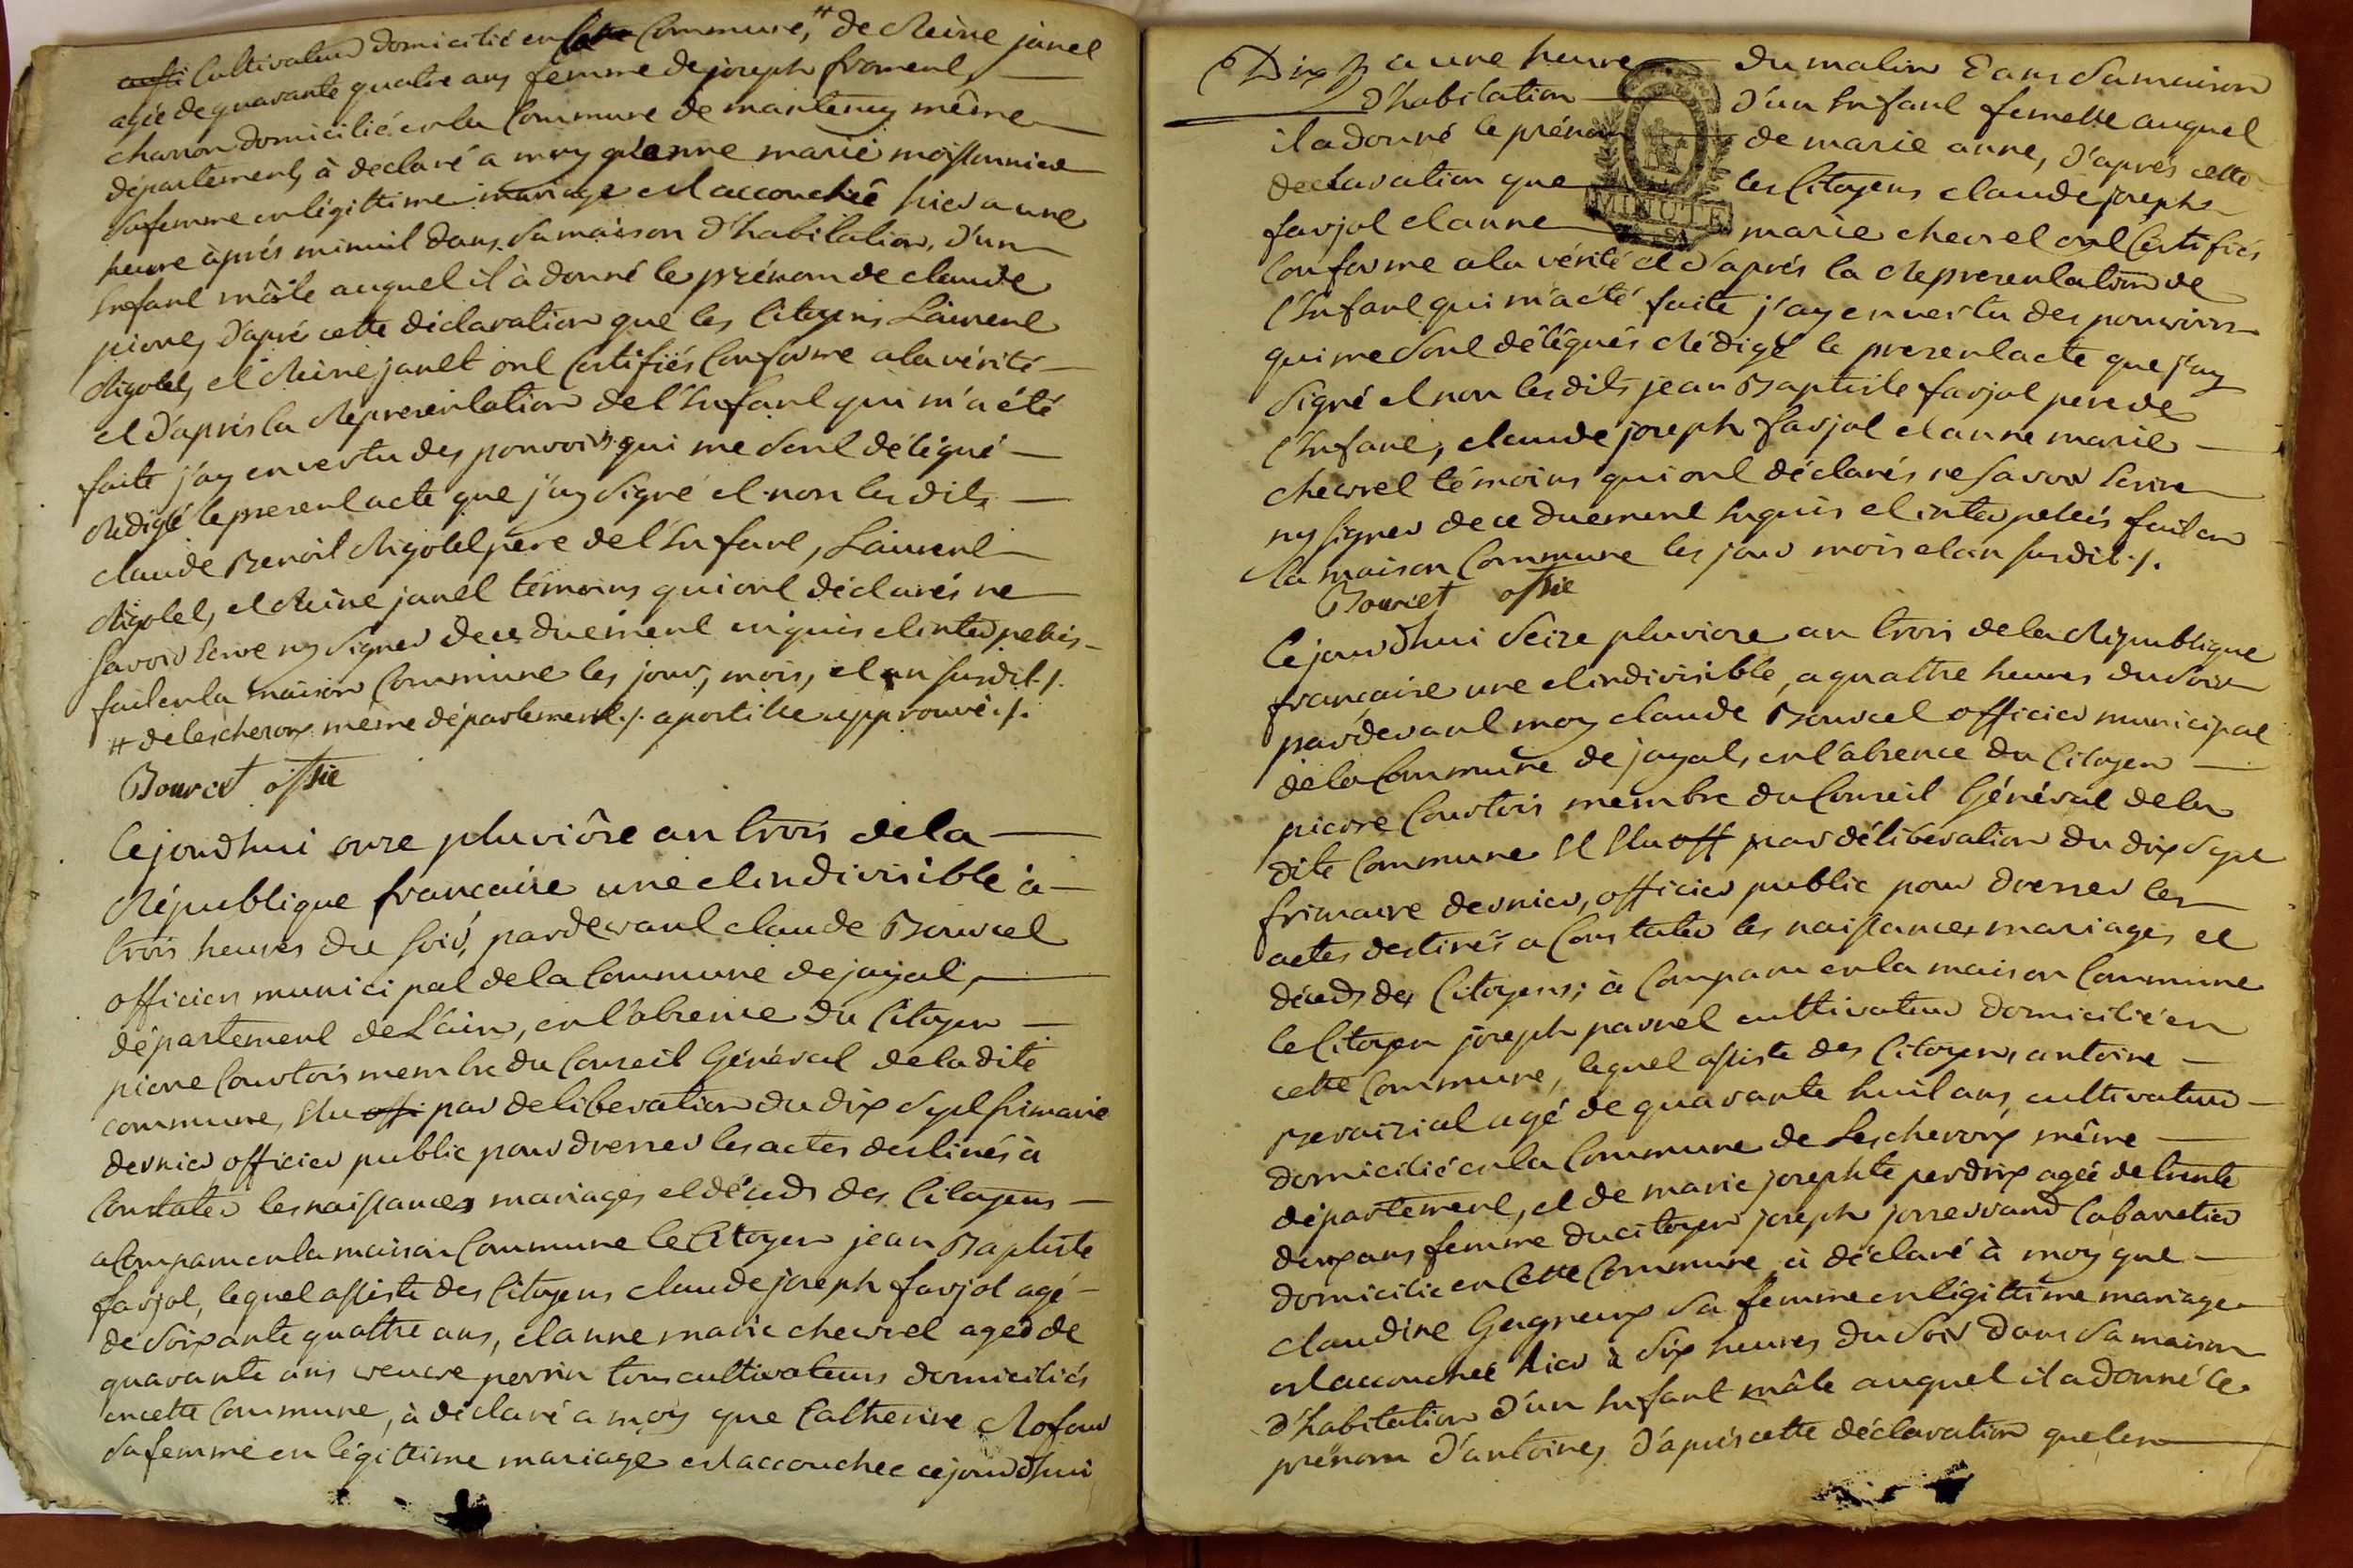 aussi Cultivateur domicilié en cette Commune, # de Reine janel
agée de quarante quatre ans femme de joseph froment,
charron domicilié en la Commune de mantenay même
département, à declaré a moy qu'anne marie moissonnier
sa femme en légittime mariage est accouchée hier a une
heure après minuit dans sa maison d'habitation, d'un
Enfant mâle auquel il à donné le prénom de claude
pierre, d'après cette déclaration que les Citoyens Laurent
Rigolet, et Reine janet ont Certifiés Conforme a la vérité
et d'après la Representation de l'Enfant qui m'a été
faite j'ay en vertu des pouvoirs qui me sont délégué
Rédigé le present acte que j'ay signé et non les dits
claude Benoit Rigolet père de l'Enfant, Laurent
Rigolet, et Reine janet temoins qui ont déclarés ne
savoir Ecrire ny signer de ce duement enquis et interpellés
fait en la maison Commune les jour, mois, et an susdit ./.
# de lescheroux même département ./. apostille approuvé ./.
Bourcet offic
Cejourdhui onze pluviôse an trois de la
République francaise une et indivisible à
trois heures du soir, pardevant claude Bourcet
officier municipal de la Commune de jayat,
département de L'ain, en l'absence du Citoyen
pierre Courtois membre du Conseil Général de la dite
commune, Elu offi par deliberation du dix sept frimaire
dernier officier public pour dresser les actes destinés à
Constater les naissances mariages et décèds des Citoyens
a Comparu en la maison Commune le Citoyen jean Baptiste
farjot, lequel assiste des Citoyens claude joseph farjot agé
de soixante quattre ans, et anne marie chevrel aged de
quarante ans veuve perrin tous cultivateurs domiciliés
en cette Commune, à déclaré a moy que Catherine Rofour
sa femme en légittime mariage est accouchée cejourdhui
Dix a une heure du matin Dans sa maison
d'habitation d'un Enfant femelle auquel
il a donné le prénom de marie anne, d'après cette
declaration que les Citoyens claude joseph
farjot et anne marie chevrel ont Certifiés
MINUTE
Conforme a la vérité et d'après la Representation de
l'Enfant qui m'a été faite j'ay en vertu des pouvoirs
qui me sont délégués Rédigé le present acte que j'ay
signé et non les dits jean Baptiste farjot pere de
l'Enfant, claude joseph farjot et anne marie
chevrel témoins qui ont déclarés ne savoir Ecrire
ny signer de ce duement Enquis et interpellés fait en
la maison Commune les jour mois et an susdit ./.
Bourcet offic
Cejourdhui seize pluviose an trois de la République
francaise une et indivisible, a quattre heures du soir
pardevant moy claude Bourcet officier municipal
de la Commune de jayat, en l'absence du Citoyen
pierre Courtois membre du Conseil Général de la
dite Commune et Elu off par délibération du dix sept
frimaire dernier, officier public pour dresser les
actes destinés a Constater les naissances mariages et
décèds des Citoyens; à Comparu en la maison Commune
le Citoyen joseph parnel cultivateur domicilié en
cette Commune, lequel assiste des Citoyens antoine
agé de quarante huit ans, cultivateur
domicilié en la Commune de Lescheroux même
département, et de marie josephte perdrix agée de trente
deux ans femme du citoyen joseph josserand Cabaretier
domicilié en Cette Commune, à déclaré à moy que
claudine Gagneux sa femme en légittime mariage
est accouchée hier à six heures du soir dans sa maison
d'habitation d'un Enfant mâle auquel il a donné le
prénom d'antoine, d'après cette déclaration que les